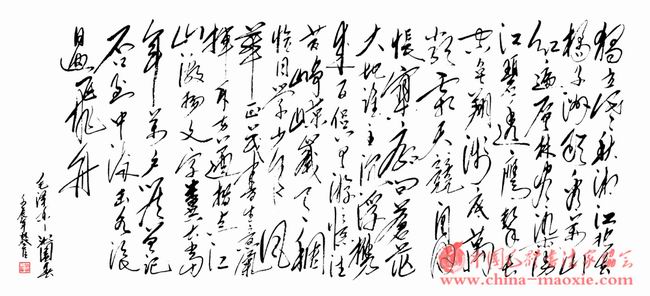 独立寒秋湘江北去
橘子洲头看万山
红遍层林尽染漫
江碧透鹰击长
空鱼翔浅底万
类霜天竞自由
怅寥廓问苍茫
大地谁主沉浮携
来百侣曾游忆往
昔峥嵘岁月稠
恰同学少年风
华正茂书生意气
挥斥方遒指点江
山激扬文字粪土当
年万户侯曾记
否到中流击水浪
遏飞舟
毛泽东沁园春
www.maoxie.com